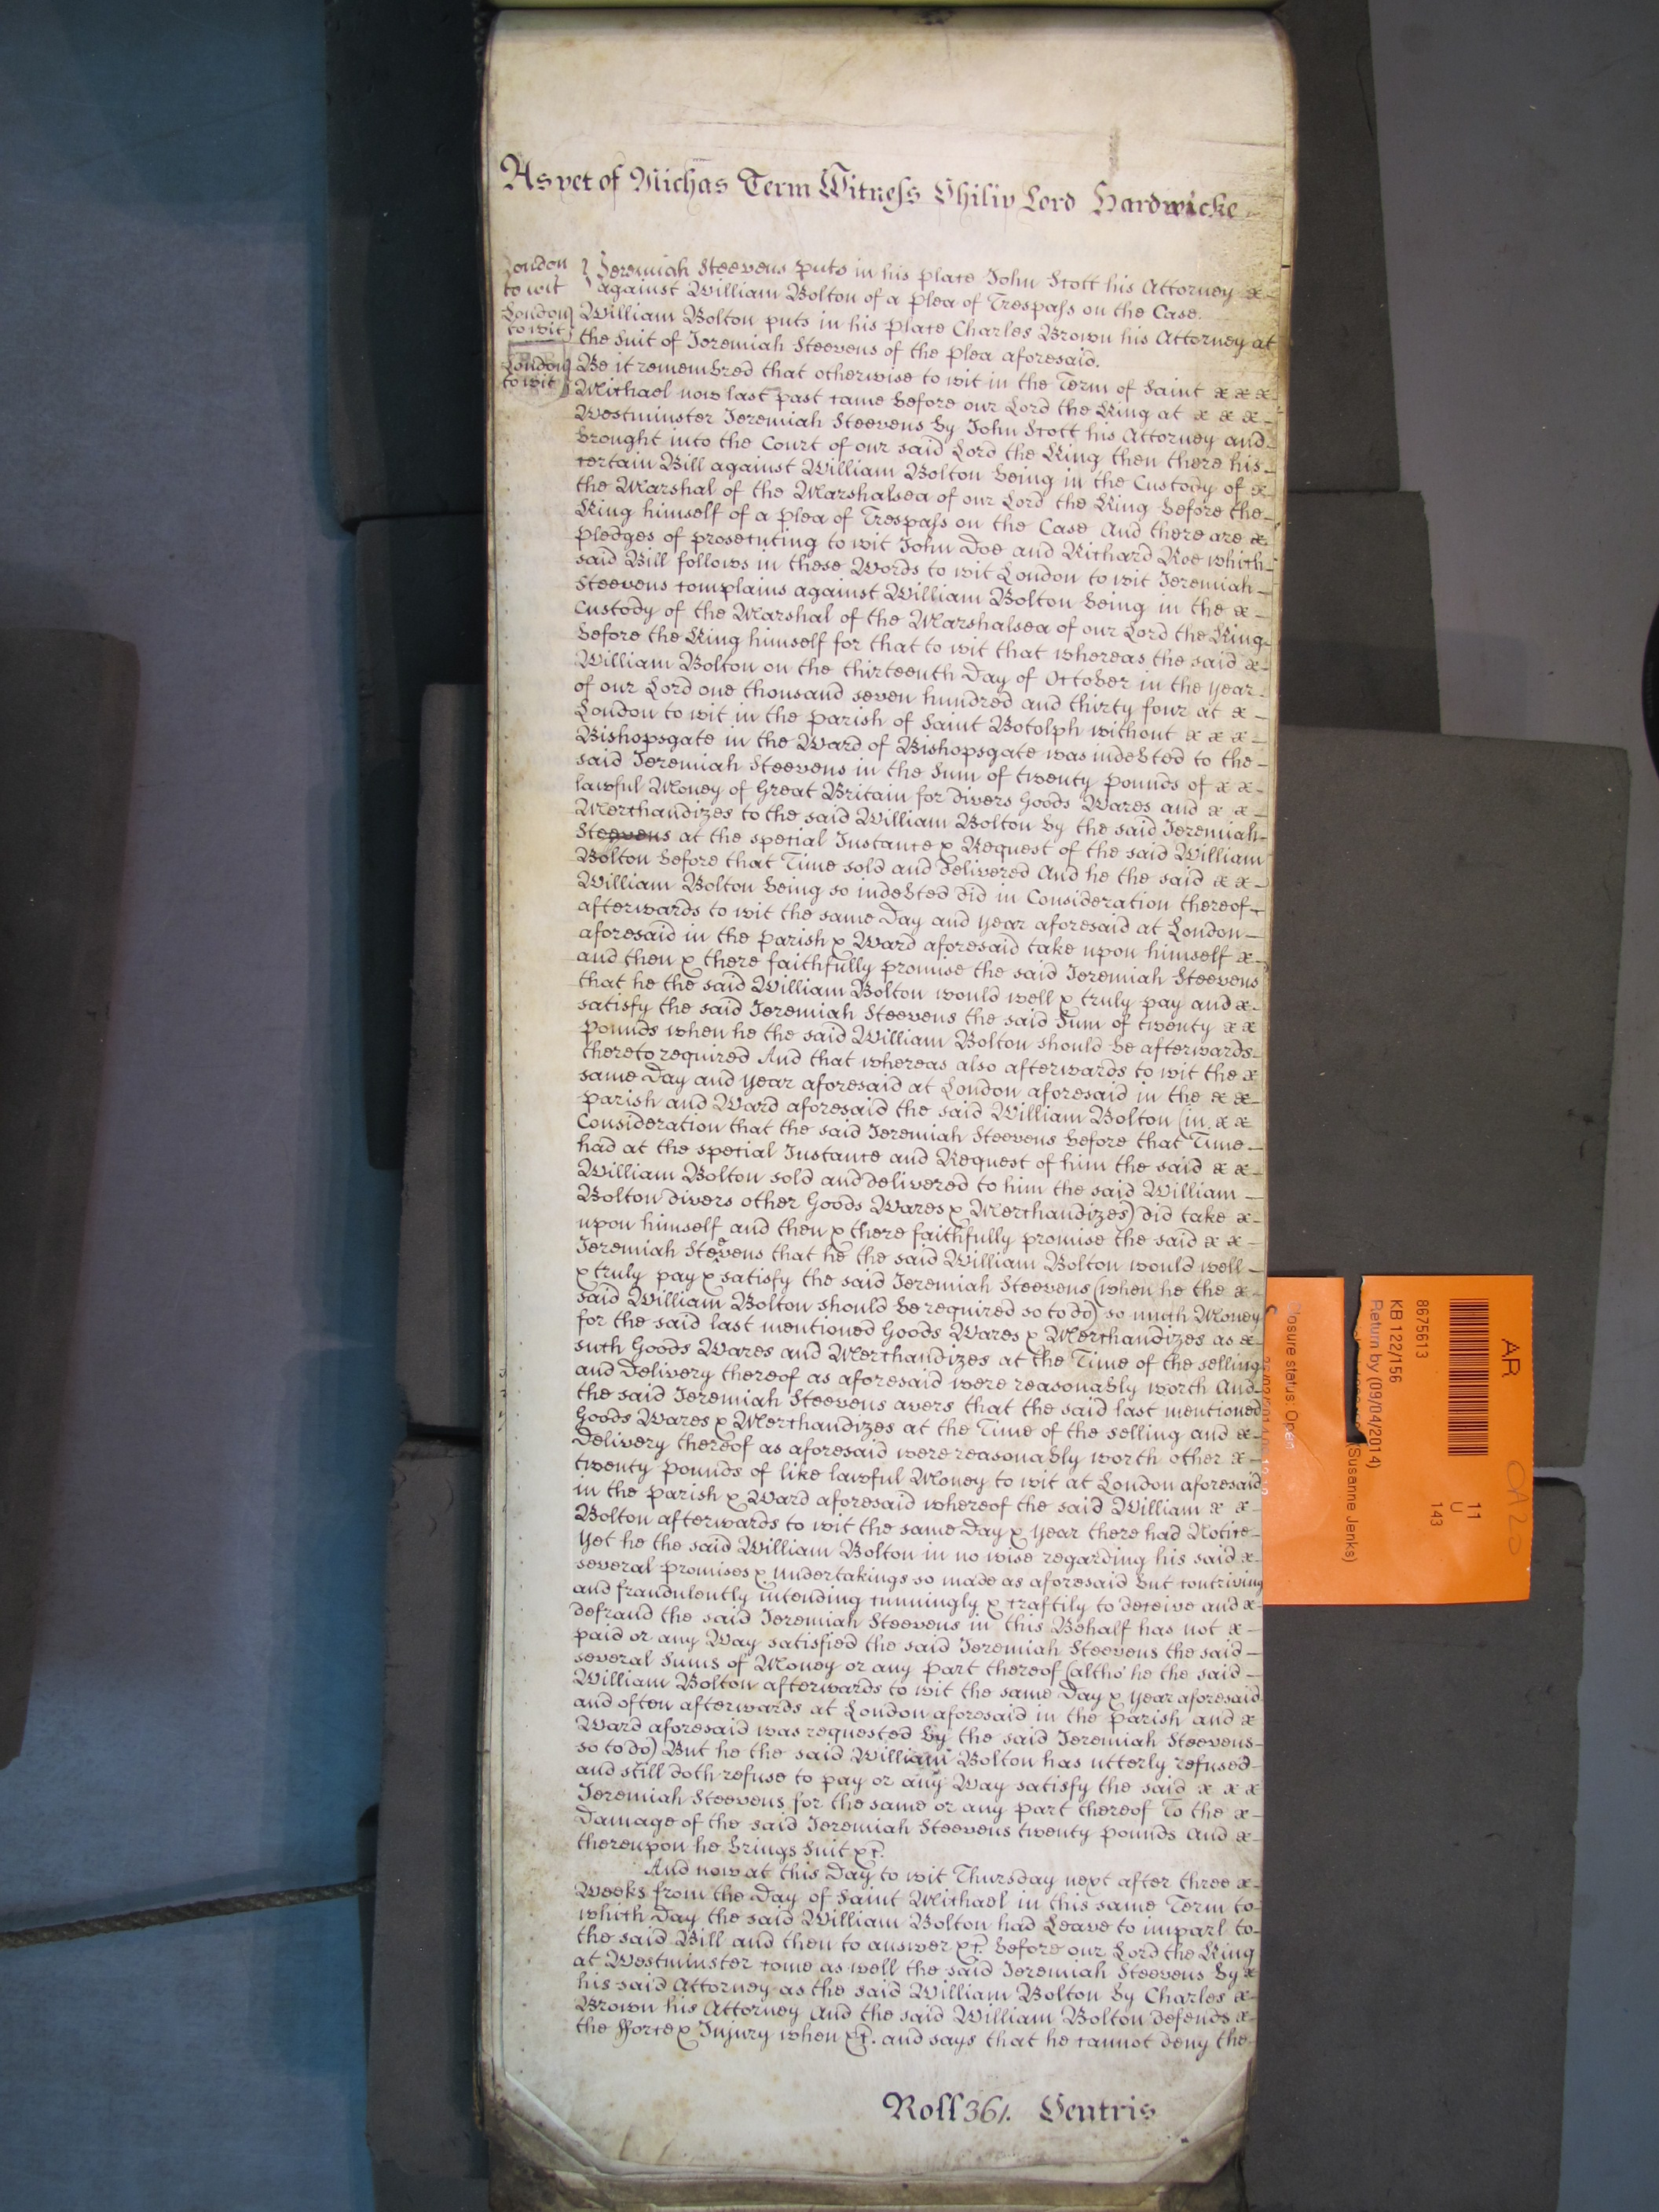 As yet of Michas Term Witness Philip Lord Hardwicke
London } Jeremiah Steevens puts in his place John Scott his Attorney &
to wit } against William Bolton of a Plea of Trespass on the Case.
London } William Bolton puts in his place Charles Brown his Attorney at
to wit } the Suit of Jeremiah Steevens of the Plea aforesaid.
London } Be it remembred that otherwise to wit in the Term of Saint & & &
to wit } Michael now last past came before our Lord the King at & & &
Westminster Jeremiah Steevens by John Scott his Attorney and
brought into the Court of our said Lord the King then there his
certain Bill against William Bolton being in the Custody of &
the Marshal of the Marshalsea of our Lord the King before the
King himself of a Plea of Trespass on the Case And there are &
Pledges of prosecuting to wit John Doe and Richard Roe which
said Bill follows in these Words to wit London to wit Jeremiah
Steevens complains against William Bolton being in the &
Custody of the Marshal of the Marshalsea of our Lord the King
before the King himself for that to wit that whereas the said &
William Bolton on the thirteenth Day of October in the Year
of our Lord one thousand seven hundred and thirty four at &
London to wit in the Parish of Saint Botolph without & & &
Bishopsgate in the Ward of Bishopsgate was indebted to the
said Jeremiah Steevens in the Sum of twenty Pounds of & &
lawful Money of Great Britain for divers Goods Wares and & &
Merchandizes to the said William Bolton by the said Jeremiah
Steevens at the special Instance & Request of the said William
Bolton before that Time sold and delivered And he the said & &
William Bolton being so indebted did in Consideration thereof
afterwards to wit the same Day and Year aforesaid at London
aforesaid in the Parish & Ward aforesaid take upon himself &
and then & there faithfully promise the said Jeremiah Steevens
that he the said William Bolton would well & truly pay and &
satisfy the said Jeremiah Steevens the said Sum of twenty & &
Pounds when he the said William Bolton should be afterwards
thereto required And that whereas also afterwards to wit the &
same Day and Year aforesaid at London aforesaid in the & &
Parish and Ward aforesaid the said William Bolton (in & &
Consideration that the said Jeremiah Steevens before that Time
had at the special Instance and Request of him the said & &
William Bolton sold and delivered to him the said William
Bolton divers other Goods Wares & Merchandizes) did take &
upon himself and then & there faithfully promise the said & &
Jeremiah Steevens that he the said William Bolton would well
& truly pay & satisfy the said Jeremiah Steevens (when he the &
said William Bolton should be required so to do) so much Money
for the said last mentioned Goods Wares & Merchandizes as &
such Goods Wares and Merchandizes at the Time of the selling
and Delivery thereof as aforesaid were reasonably worth And
the said Jeremiah Steevens avers that the said last mentioned
Goods Wares & Merchandizes at the Time of the selling and &
Delivery thereof as aforesaid were reasonably worth other &
twenty Pounds of like lawful Money to wit at London aforesaid
in the Parish & Ward aforesaid whereof the said William & &
Bolton afterwards to wit the same Day & Year there had Notice
Yet he the said William Bolton in no wise regarding his said &
several Promises & Undertakings so made as aforesaid but contriving
and fraudulently intending cunningly & craftily to deceive and &
defraud the said Jeremiah Steevens in this Behalf has not &
paid or any Way satisfied the said Jeremiah Steevens the said
several Sums of Money or any Part thereof (altho' he the said
William Bolton afterwards to wit the same Day & Year aforesaid
and often afterwards at London aforesaid in the Parish and &
Ward aforesaid was requested by the said Jeremiah Steevens
so to do) But he the said William Bolton has utterly refused
and still doth refuse to pay or any Way satisfy the said & & &
Jeremiah Steevens for the same or any Part thereof To the &
Damage of the said Jeremiah Steevens twenty Pounds And &
thereupon he brings Suit &c.
And now at this Day to wit Thursday next after three &
Weeks from the Day of Saint Michael in this same Term to
which Day the said William Bolton had Leave to imparl to
the said Bill and then to answer &c. before our Lord the King
at Westminster come as well the said Jeremiah Steevens by &
his said Attorney as the said William Bolton by Charles &
Brown his Attorney And the said William Bolton defends &
the fforce & Injury when &c. and says that he cannot deny the
Roll 361. Ventris
AR
11
U
143
8675613
KB 122/156
Return by (09/04/2014)
(Susanne Jenks)
Closure status: Open
OA20